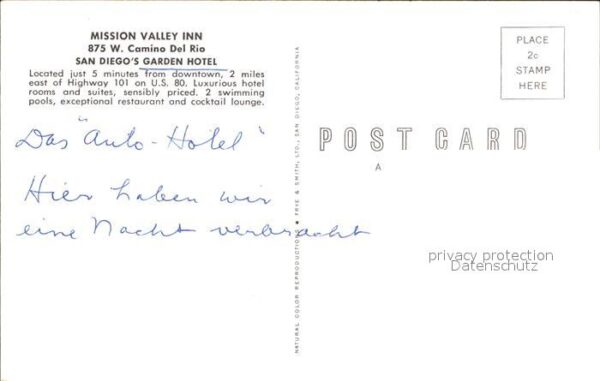 MISSION VALLEY INN
875 W. Camino Del Rio
SAN DIEGO'S GARDEN HOTEL
Located just 5 minutes from downtown, 2 miles
east of Highway 101 on U.S. 80. Luxurious hotel
rooms and suites, sensibly priced. 2 swimming
pools, exceptional restaurant and cocktail lounge.
Das "Auto-Hotel"
Hier haben wir
eine Nacht verbracht
NATURAL COLOR REPRODUCTIONS ★ FRYE & SMITH, LTD., SAN DIEGO, CALIFORNIA
PLACE
2c
STAMP
HERE
POST CARD
A
privacy protection
Datenschutz